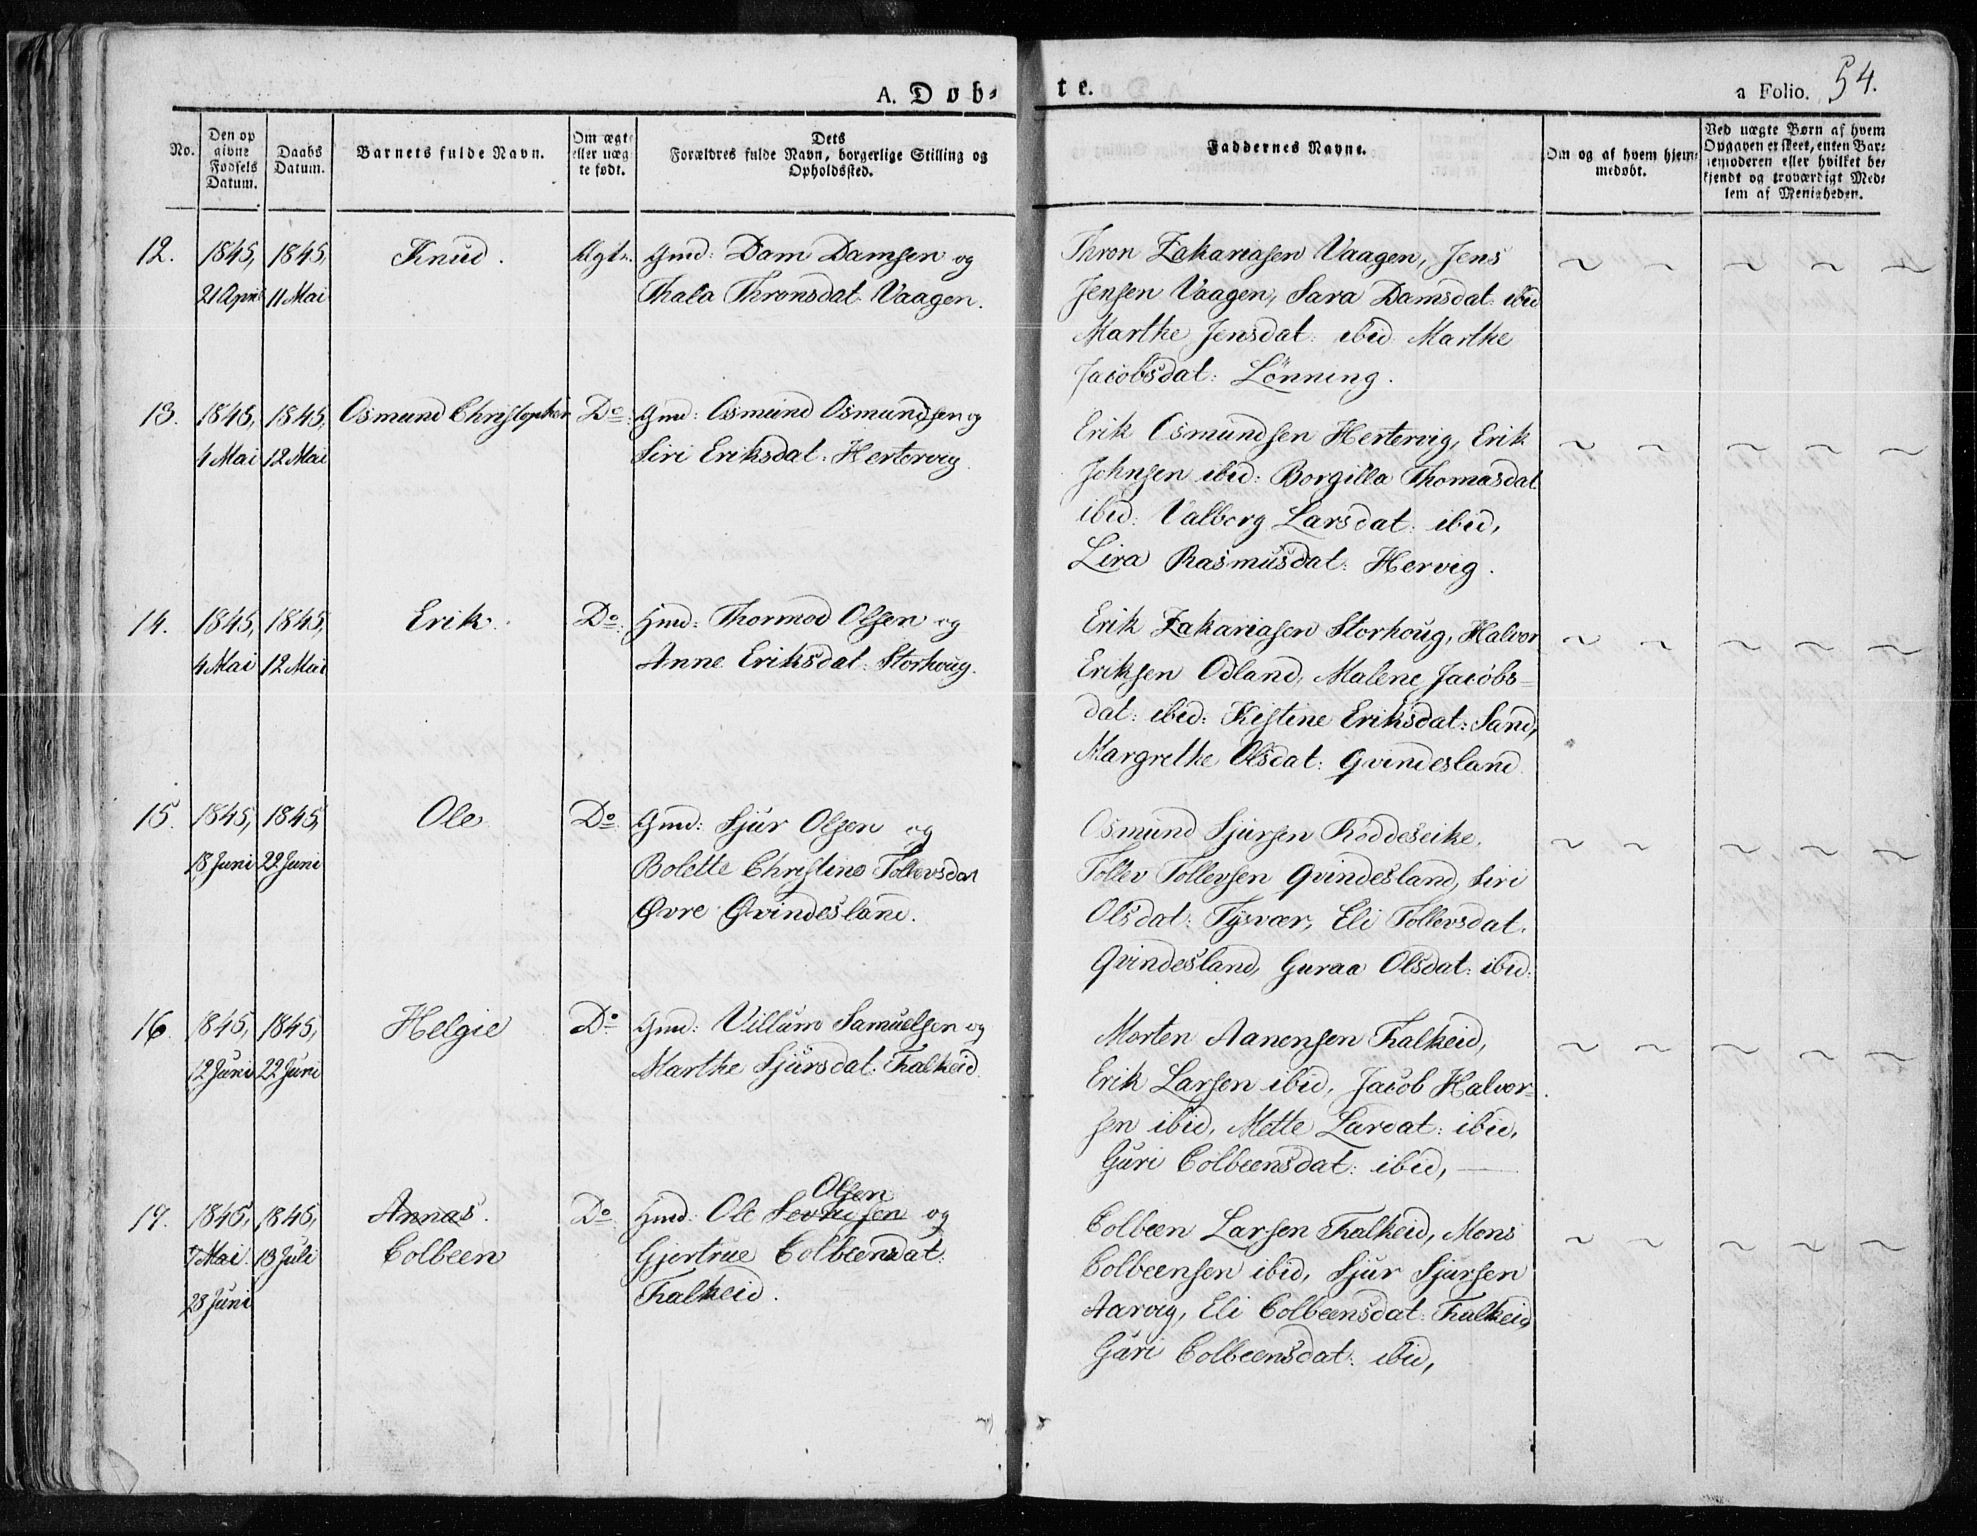 A. Døb-
te.
a Folio. 54.
No.
Den op
givne
Fødsels
Datum.
Daabs
Datum.
Barnets fulde Navn.
Om ægte
eller uæg
te født.
Dets
Forældres fulde Navn, borgerlige Stilling og
Opholdssted.
Faddernes Navne.
Om og af hvem hjem-
medøbt.
Ved uægte Børn af hvem
Opgaven er skeet, enten Bar-
nemoderen eller hvilket be-
kjendt og troværdigt Med-
lem af Menigheden.
12.
1845,
21 April
1845,
11 Mai
Knud.
Ægte.
Gmd: Dam Damsen og
Thala Thronsdat. Vaagen.
Thron Zakariasen Vaagen, Jens
Jensen Vaagen, Sara Damsdat. ibid
Marthe Jensdat: ibid Marthe
Jacobsdat: Lönning.
13.
1845,
4 Mai
1845,
12 Mai
Osmund Christopher
Do
Gmd: Osmund Osmundsen og
Siri Eriksdat. Hertervig.
Erik Osmundsen Hertervig, Erik
Johnsen ibid: Borgilla Thomasdat
ibid: Valborg Larsdat: ibid,
Lira Rasmusdat: Hervig.
14.
1845,
4 Mai
1845,
12 Mai
Erik.
Do
Hmd: Thormod Olsen og
Anne Eriksdat: Storhoug.
Erik Zakariasen Storhoug, Halvor
Eriksen Odland, Malene Jacobs-
dat: ibid: Kistine Eriksdat: Sand,
Margrethe Olsdat: Qvindesland
15.
1845,
18 Juni
1845,
22 Juni
Ole
Do
Gmd: Sjur Olsen og
Bolette Christine Tollevsdat
Øvre Qvindesland.
Osmund Sjursen Röddeseike,
Tollev Tollevsen Qvindesland, Siri
Olsdat: Tysvær, Eli Tollevsdat.
Qvindesland, Guraa Olsdat: ibid:
16.
1845,
12 Juni
1845,
22 Juni
Helgie
Do
Gmd: Villum Samuelsen og
Marthe Sjursdat: Falkeid
Morten Aanensen Falkeid,
Erik Larsen ibid, Jacob Halvor-
sen ibid, Mette Lardat: ibid,
Guri Colbeensdat: ibid,
17.
1845,
7 Mai.
28 Juni
1845,
13 Juli
Annas.
Colbeen
Do
Olsen
Hmd: Ole og
Gjertrue Colbeensdat:
Falkeid.
Colbeen Larsen Falkeid, Mons
Colbeensen ibid, Sjur Sjursen
Aarvig, Eli Colbeensdat: Falkeid
Guri Colbeensdat: ibid,